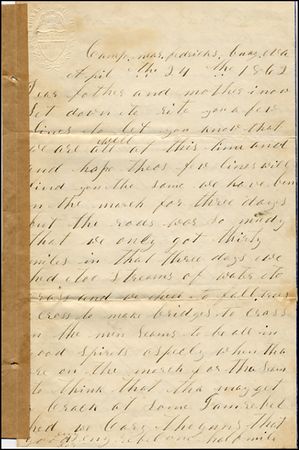 Camp near fredricks Burg va
 the 24 the 1862
Dear father and mother i now
Set down to rite you a few
lines to let you know that
we are all well at this time and
and hope theos few lines will
find you the same we have ben
on the march for three days
but the rods was so mudy
that we only got thirty
miles in that three days we
had too streams of water to
crass and we had to fall trees
across to make bridges to crass
on the men seams to be all in
good spirits aspecly when tha
are on the march for tha seam
to think that tha may get
a crack at some Damrebel
 we Cary shoguns that
 rebel one half mile